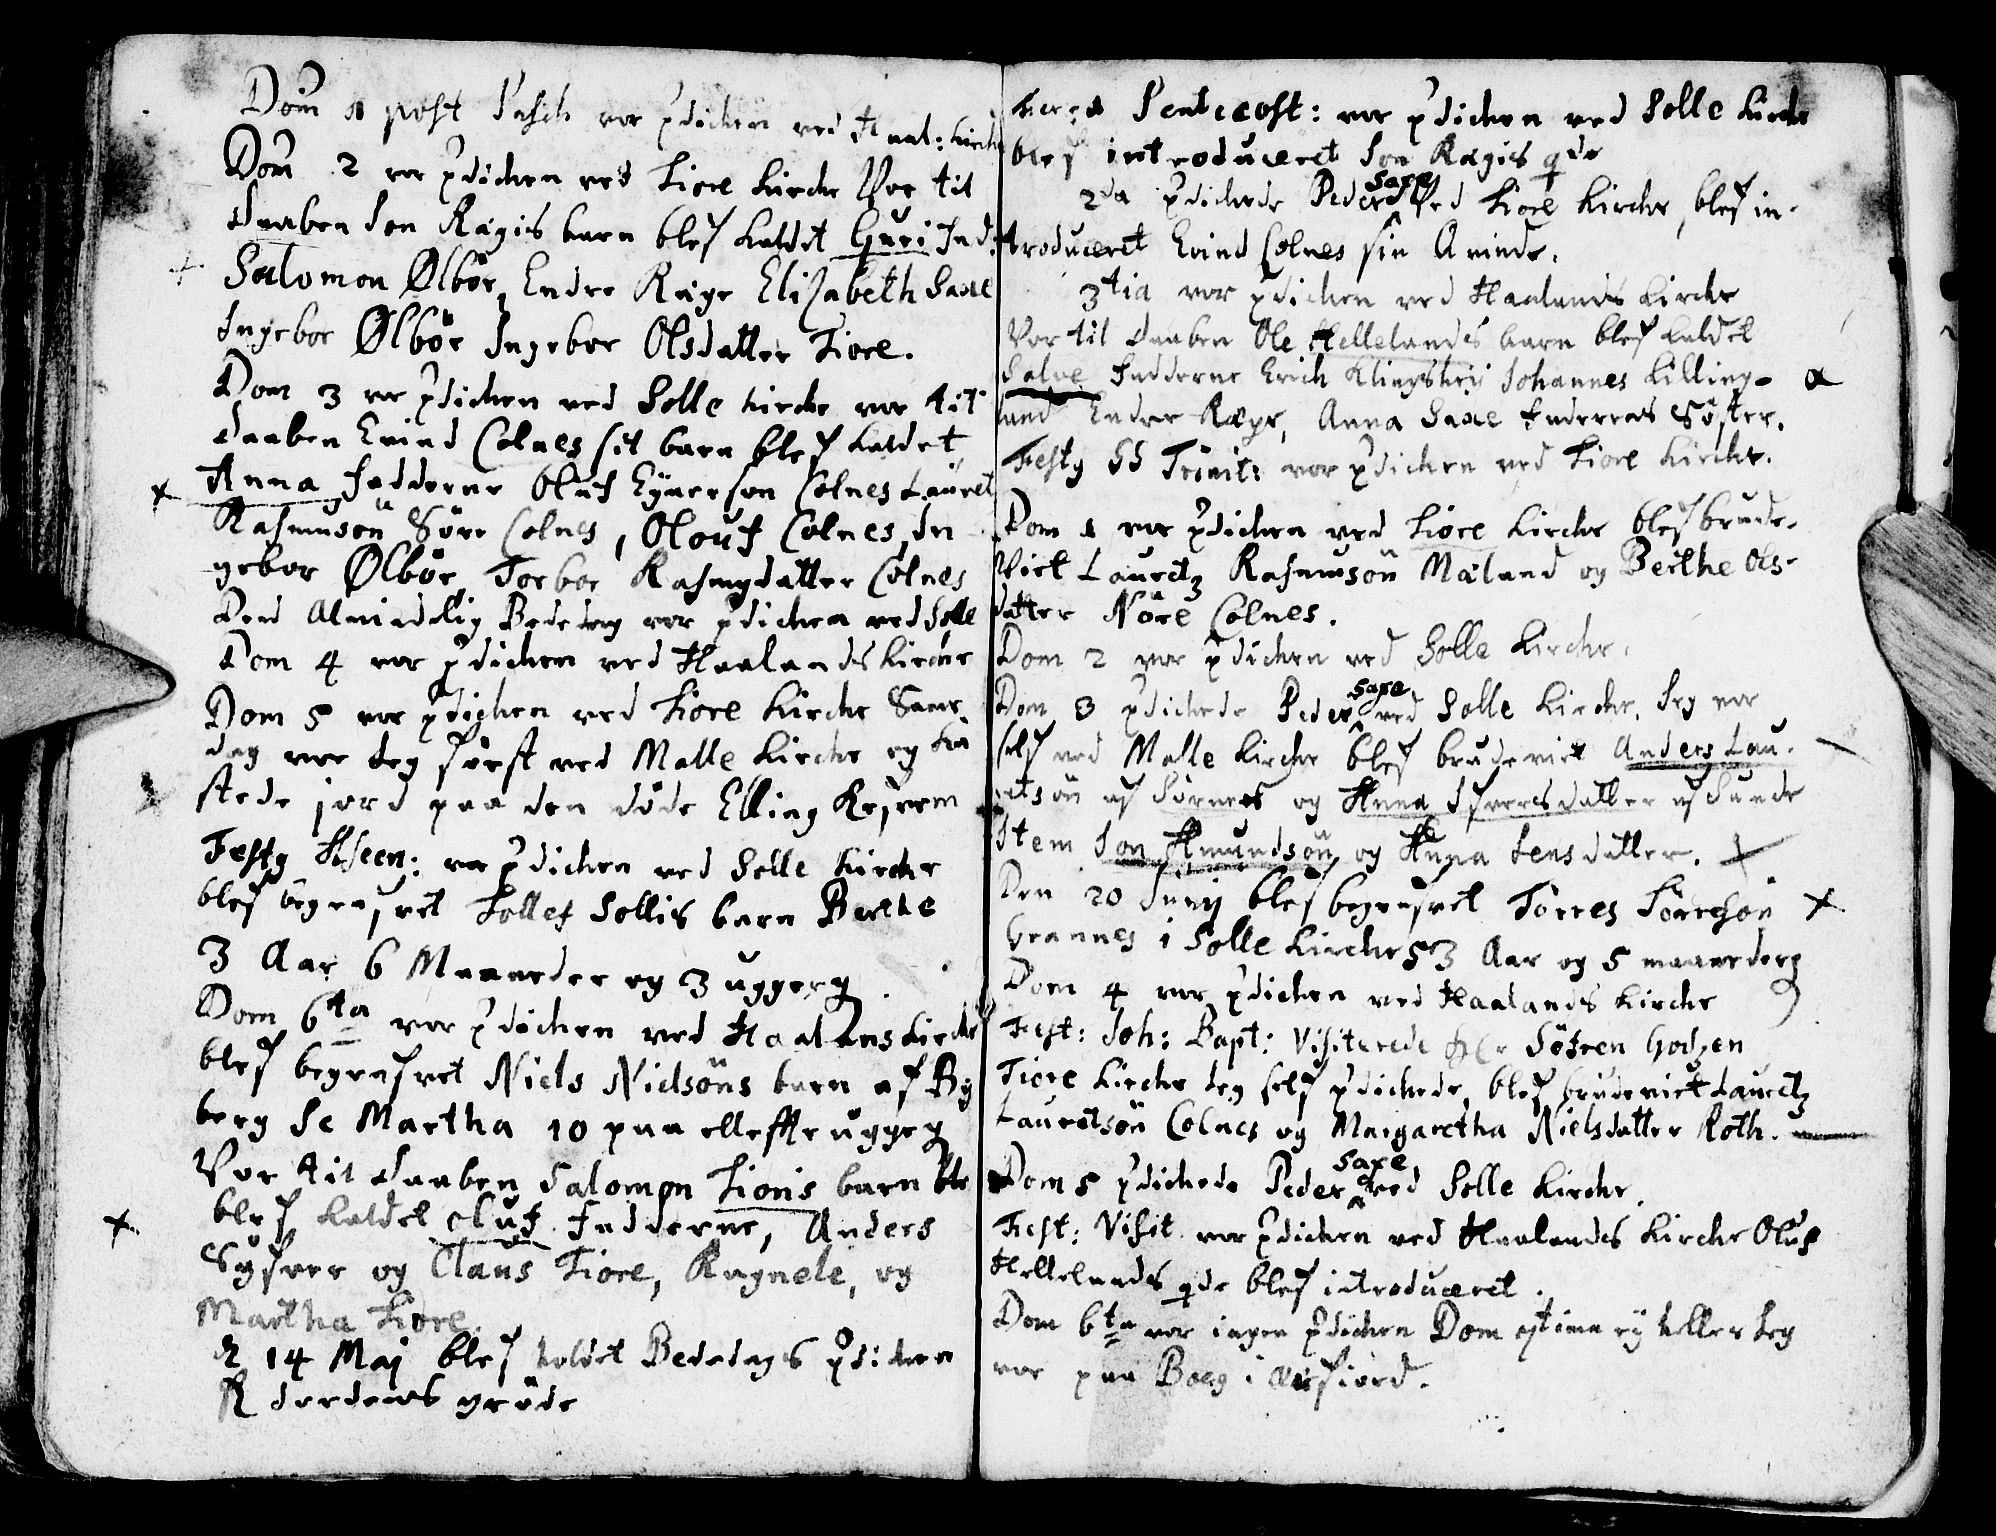 Dom 1 post Pasch var prdichen ved Haal: Kirche
Dom 2 var prdichen ved Tiore Kirche Var til
daaben Jon Rægis barn blef kaldet Guri Fad:
Salomon Ølbör, Endre Ræge Elizabeth Saxe
Ingebor Ølbör Ingebor Olsdatter Tiore.
Dom 3 var prdichen ved Solle kirche var til
daaben Evind Colnes sit barn blef kaldet
Anna Fadderne Oluf Eÿnerson Colnes Lauret
Rasmusön Söre Colnes, Olouf Colnes, In
gebor Ølbör Torbor Rasmusdatter Colnes
Den Almindelig Bededag var prdichen ved Solle
Dom 4 var prdichen ved Haalands Kirche
Dom 5 var prdichen ved Tiore Kirche Same
dag var Jeg först ved Malle Kirche og ka
stede jord paa den döde Elling
Festg Ascen: var prdichen ved Solle Kirche
blef begrafvet Tollef Sollis barn Berthe
3 Aar 6 Maaneder og 3 uggerg
Dom 6ta var prdichen ved Haalans Kirche
blef begrafvet Niels Nielsöns barn af By
berg Se Martha 10 paa elleffte uggeg
Var til daaben Salomon Tioris barn ble
blef kaldet oluf Fadderne, Anders
Syfver og Claus Tiore, Ragnele, og
Martha Tiore.
D 14 Maj blef holdet Bededags prdichen
for Jordens gröde
Fer: 1 Pentecost: var prdichen ved Solle Kirche
blef introduceret Jon Rægis qde
2da prdichede Peder Saxe ved Tiore Kirche, blef in-
troduceret Evind Colnes sin Qvinde.
3tia var prdichen ved Haalands Kirche
Var til daaben Ole Hellelands barn blef kaldet
Salve Fadderne Erich Klingshej Johannes Killing-
land Endre Ræge, Anna Saxe Faderens Söster.
Festg SS Trinit: var prdichen ved Tiore Kirche.
Dom 1 var prdichen ved Tiore Kirche blef brude-
viet Lauretz Rasmusön Mæland og Berthe Ols-
datter Nöre Colnes.
Dom 2 var prdichen ved Solle Kirche.
Dom 3 prdichede Peder Saxe ved Solle Kirche. Jeg var
self ved Malle Kirche blef brudeviet Anders Lau-
ritsön af Sörnes og Anna Ifversdatter af Sunde
Item Jon Amundsön og Anna Jensdatter.
Den 20 Junij blef begrafvet Törres Törresön
Grannes i Solle Kirche 53 Aar og 5 maanederg
Dom 4 var prdichen ved Haalands Kirche
Fest: Joh: Bapt: Visiterede Her Söfren Godzen
Tiore Kirche Jeg self prdichede, blef brudeviet Lauretz
Lauretsön Colnes og Margaretha Nielsdatter Roth.
Dom 5 prdichede Peder Saxe ved Solle Kirche.
Fest: Visit. var prdichen ved Haalandes Kirche Oluf
Hellelands qde blef introduceret.
Dom 6ta var ingen prdichen Dom 7tima ej heller Jeg
var paa Borg i